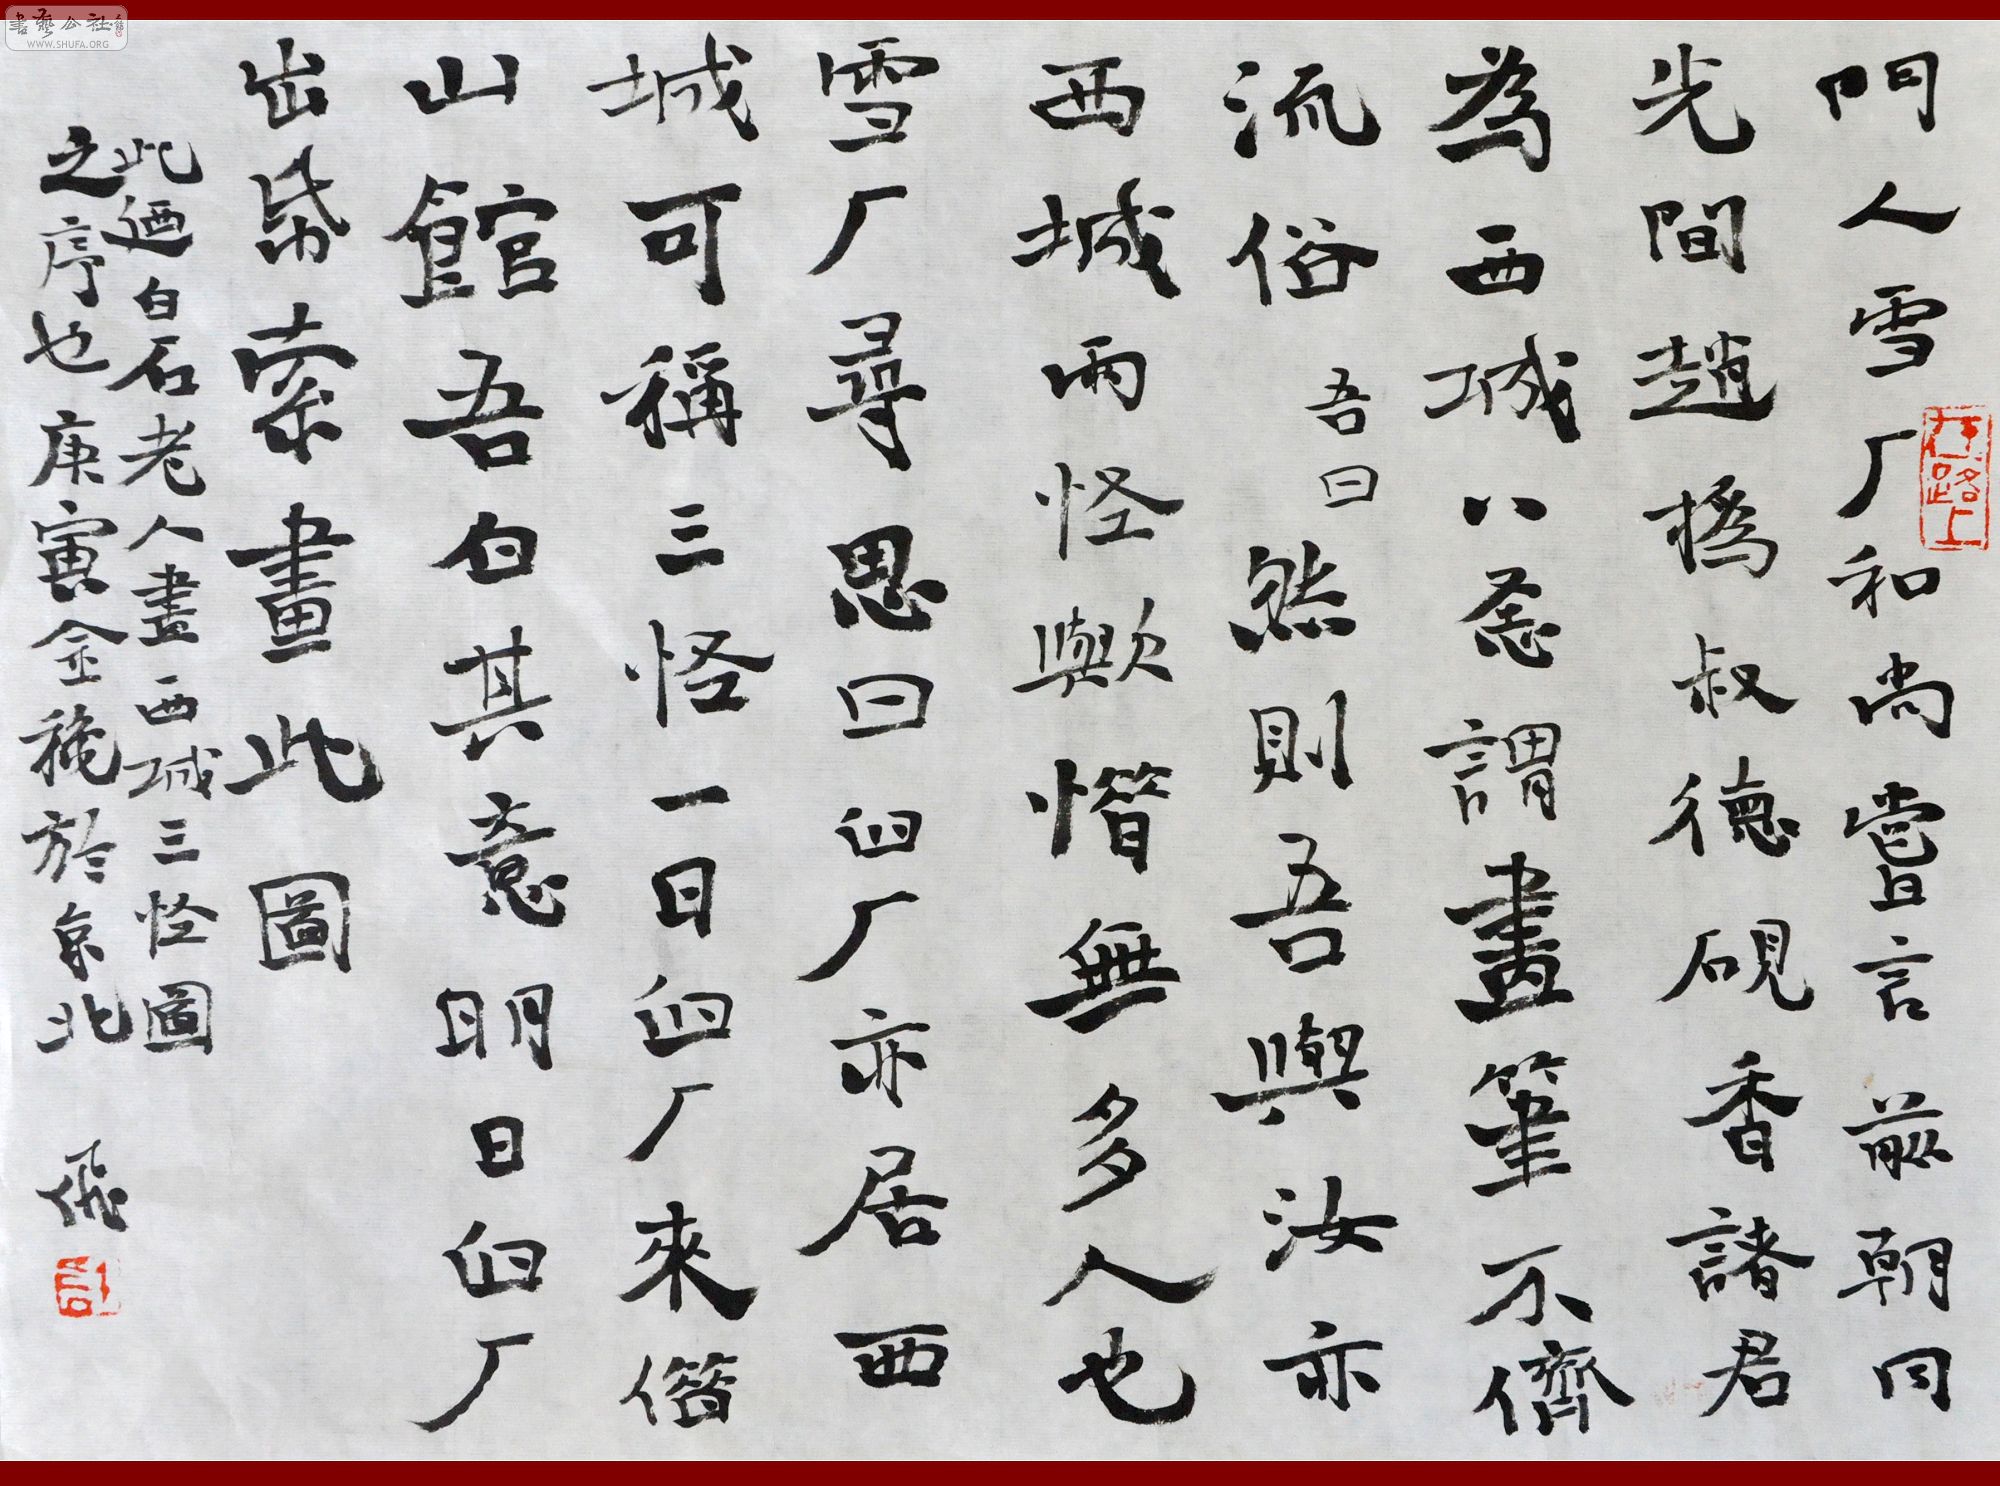 門人雪厂和尚嘗言前朝同
光間趙撝叔德硯香諸君
為西城八怪謂畫筆不儕
流俗吾曰然則吾與汝亦
西城兩怪歟惜無多人也
雪厂尋思曰臼厂亦居西
城可稱三怪一日臼厂來借
山館吾白其意明日臼厂
出帋索畫此圖
此迺白石老人畫西城三怪圖
之序也庚寅金秋於京北
書藝公社
WWW.SHUFA.ORG